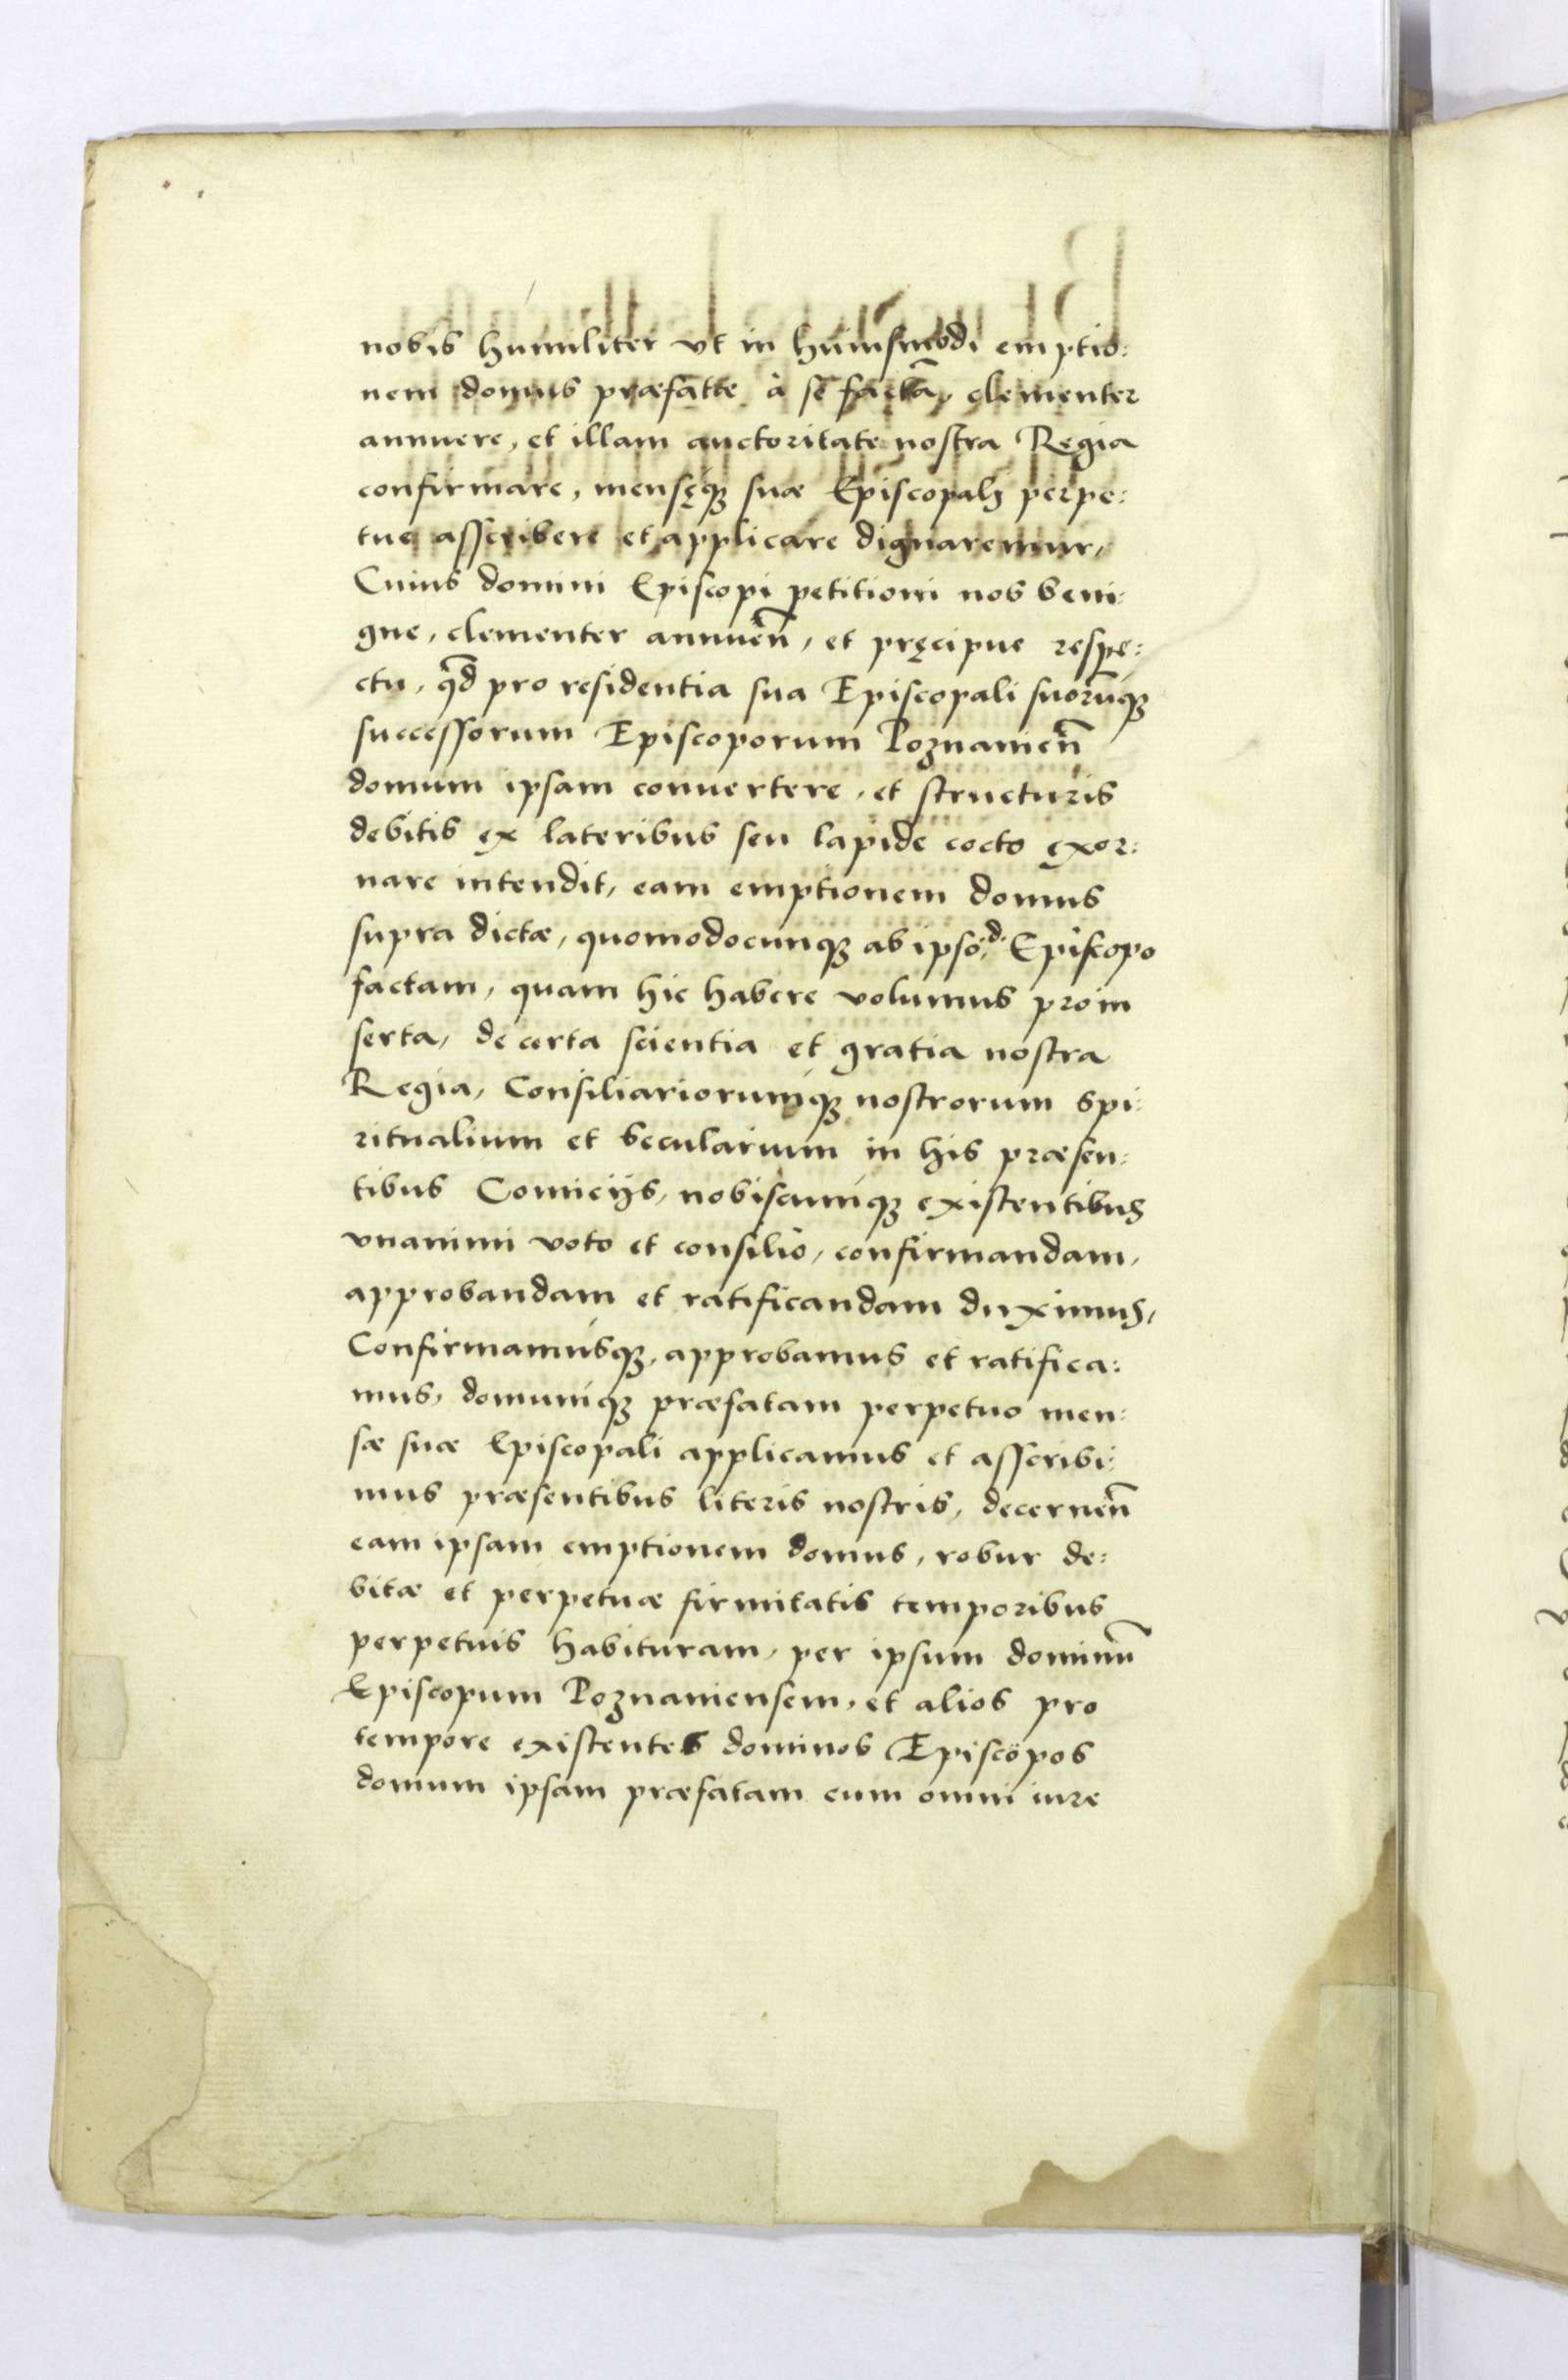 nobis humiliter vt in huiusmodi emptio:
nem domus præfatæ à se factã, clementer
annuere, et illam auctoritate nostra Regia
confirmare, mensęqꝫ suæ Episcopali perpe:
tue asscribere et applicare dignaremur,
Cuius domini Episcopi petitioni nos beni:
gne, clementer annuen̄, et pręcipue respe:
ctu, qd̄ pro residentia sua Episcopali suorūqꝫ
successorum Episcoporum Poznanien̄
domum ipsam conuertere, et structuris
debitis ex lateribus seu lapide cocto exor:
nare intendit, eam emptionem domus
supra dictæ, quomodocunqꝫ ab ipso d. Episcopo
factam, quam hic habere volumus pro in
serta, de certa scientia et gratia nostra
Regia, Consiliariorumqꝫ nostrorum spi:
ritualium et secularium in his præsen:
tibus Comicijs, nobiscumqꝫ existentibus
vnanimi voto et consilio, confirmandam,
approbandam et ratificandam duximus,
Confirmamusqꝫ, approbamus et ratifica:
mus, domumqꝫ præfatam perpetuo men:
sæ suæ Episcopali applicamus et asscribi:
mus præsentibus literis nostris, decernen̄
eam ipsam emptionem domus, robur de:
bitæ et perpetuæ firmitatis temporibus
perpetuis habituram, per ipsum dominū
Episcopum Poznaniensem, et alios pro
tempore existentes dominos Episcopos
domum ipsam præfatam cum omni iure